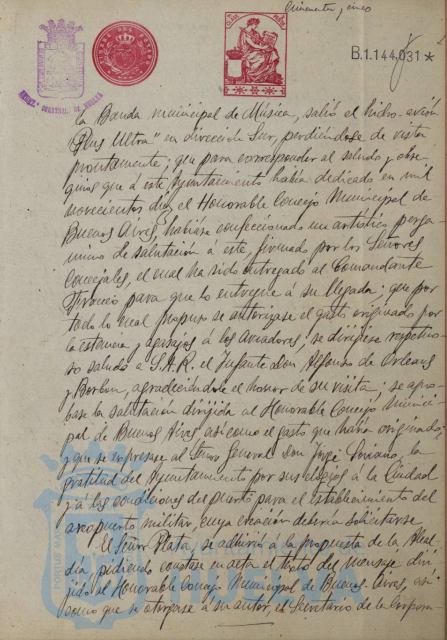 Cincuenta y cinco
B.1.144.031*
la Banda municipal de Música, salió el hidro-avión
"Plus Ultra" en dirección Sur, perdiéndose de vista
prontamente; que para corresponder al saludo y obse
quios que á este Ayuntamiento había dedicado en mil
novecientos diez el Honorable Concejo Municipal de
Buenos Aires, habíase confeccionado un artístico perga
mino de salutación á este, firmado por los Señores
Concejales, el cual ha sido entregado al Comandante
Franco para que lo entregue á su llegada; que por
todo lo cual propuso se autorizase el gasto originado por
la estancia y agasajos á los Aviadores; se dirigiese respetuo
so saludo a S.A.R. el Infante Don Alfonso de Orleans
y Borbón, agradeciéndole el honor de su visita; se apro
base la salutación dirijida al Honorable Concejo Munici
pal de Buenos Aires así como el gasto que había originado;
y que se expresase al Señor General Don Jorge Soriano, la
gratitud del Ayuntamiento por sus elogios á la Ciudad
y á las condiciones del puerto para el establecimiento del
aeropuerto militar, cuya creación debería solicitarse
El Señor Plata, se adhirió á la propuesta de la Alcal
día pidiendo constase en acta el texto del mensaje diri
jido al Honorable Concejo Municipal de Buenos Aires, así
como que se otorgase á su autor, el Secretario de la Corpora